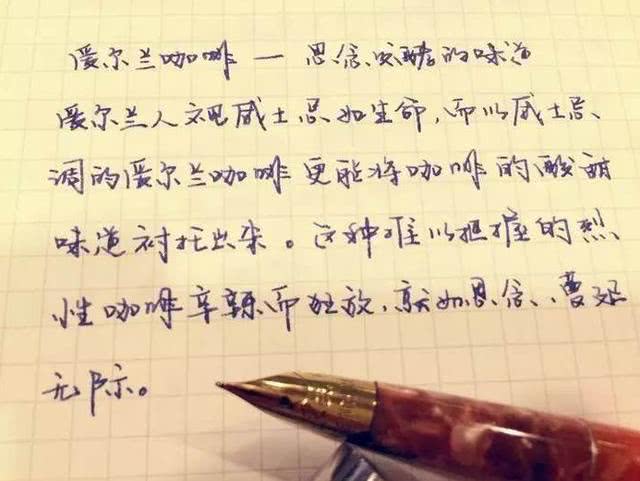 爱尔兰咖啡 — 思念发酵的味道
爱尔兰人视威士忌如生命,而以威士忌、
调的爱尔兰咖啡更能将咖啡的酸甜
味道衬托出来。这种难以抠搲的烈
性咖啡辛辣而狂放,就如思念、蔓延
无际。